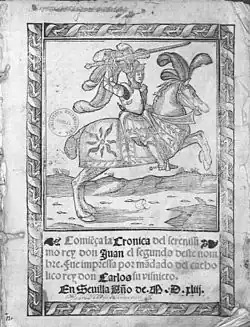 Comiẽça la Cronica del serenissi
mo rey don Juan el segundo deste nom
bre. Fue impressa por mãdado del catho
lico rey don Carlos su visnieto.
En Seuilla Año de. M. D. xliij.